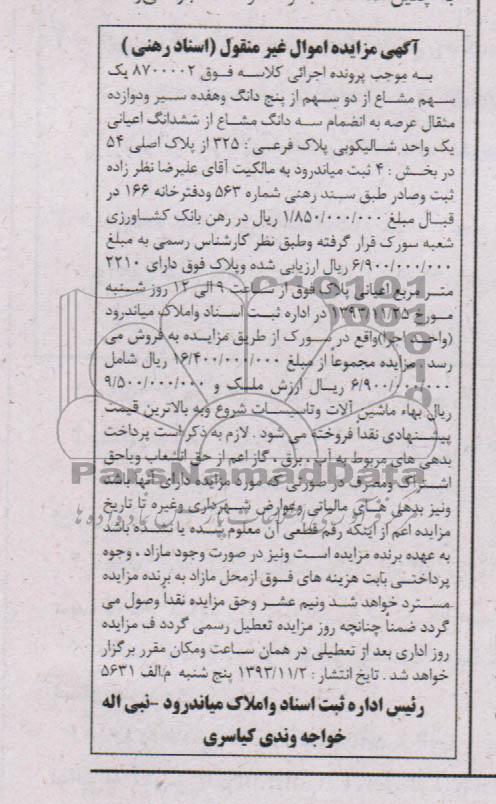 آگهی مزایده اموال غیر منقول (اسناد رهنی)
به موجب پرونده اجرائی کلاسه فوق ۸۷۰۰۰۰۲ یک
سهم مشاع از دو سهم از پنج دانگ وهفده سیر ودوازده
مثقال عرصه به انضمام سه دانگ مشاع از ششدانگ اعیانی
یک واحد شالیکوبی پلاک فرعی: ۳۲۵ از پلاک اصلی ۵۴
در بخش: ۴ ثبت میاندرود به مالکیت آقای علیرضا نظر زاده
ثبت وصادر طبق سند رهنی شماره ۵۶۳ ودفترخانه ۱۶۶ در
قبال مبلغ ۱/۸۵۰/۰۰۰/۰۰۰ ریال در رهن بانک کشاورزی
شعبه سورک قرار گرفته وطبق نظر کارشناس رسمی به مبلغ
۶/۹۰۰/۰۰۰/۰۰۰ ریال ارزیابی شده وپلاک فوق دارای ۲۲۱۰
متر مربع اعیانی پلاک فوق از ساعت ۹ الی ۱۲ روز شنبه
مورخ ۱۳۹۳/۱۱/۲۵ در اداره ثبت اسناد واملاک میاندرود
(واحد اجرا)واقع در سورک از طریق مزایده به فروش می
رسد. مزایده مجموعا از مبلغ ۱۶/۴۰۰/۰۰۰/۰۰۰ ریال شامل
۶/۹۰۰/۰۰۰/۰۰۰ ریال ارزش ملک و ۹/۵۰۰/۰۰۰/۰۰۰
ریال بهاء ماشین آلات وتاسیسات شروع وبه بالاترین قیمت
پیشنهادی نقداً فروخته می شود. لازم به ذکر است پرداخت
بدهی های مربوط به آب، برق، گاز اعم از حق انشعاب ویاحق
اشتراک ومصرف در صورتی که مورد مزایده دارای آنها باشد
ونیز بدهی های مالیاتی وعوارض شهرداری وغیره تا تاریخ
مزایده اعم از اینکه رقم قطعی آن معلوم شده یا نشده باشد
به عهده برنده مزایده است ونیز در صورت وجود مازاد، وجوه
پرداختی بابت هزینه های فوق ازمحل مازاد به برنده مزایده
مسترد خواهد شد ونیم عشر وحق مزایده نقداً وصول می
گردد ضمناً چنانچه روز مزایده تعطیل رسمی گردد ف مزایده
روز اداری بعد از تعطیلی در همان ساعت ومکان مقرر برگزار
خواهد شد. تایخ انتشار: ۱۳۹۳/۱۱/۲ پنج شنبه م/الف ۵۶۳۱
رئیس اداره ثبت اسناد واملاک میاندرود -نبی اله
خواجه وندی کیاسری
ParsNamadData